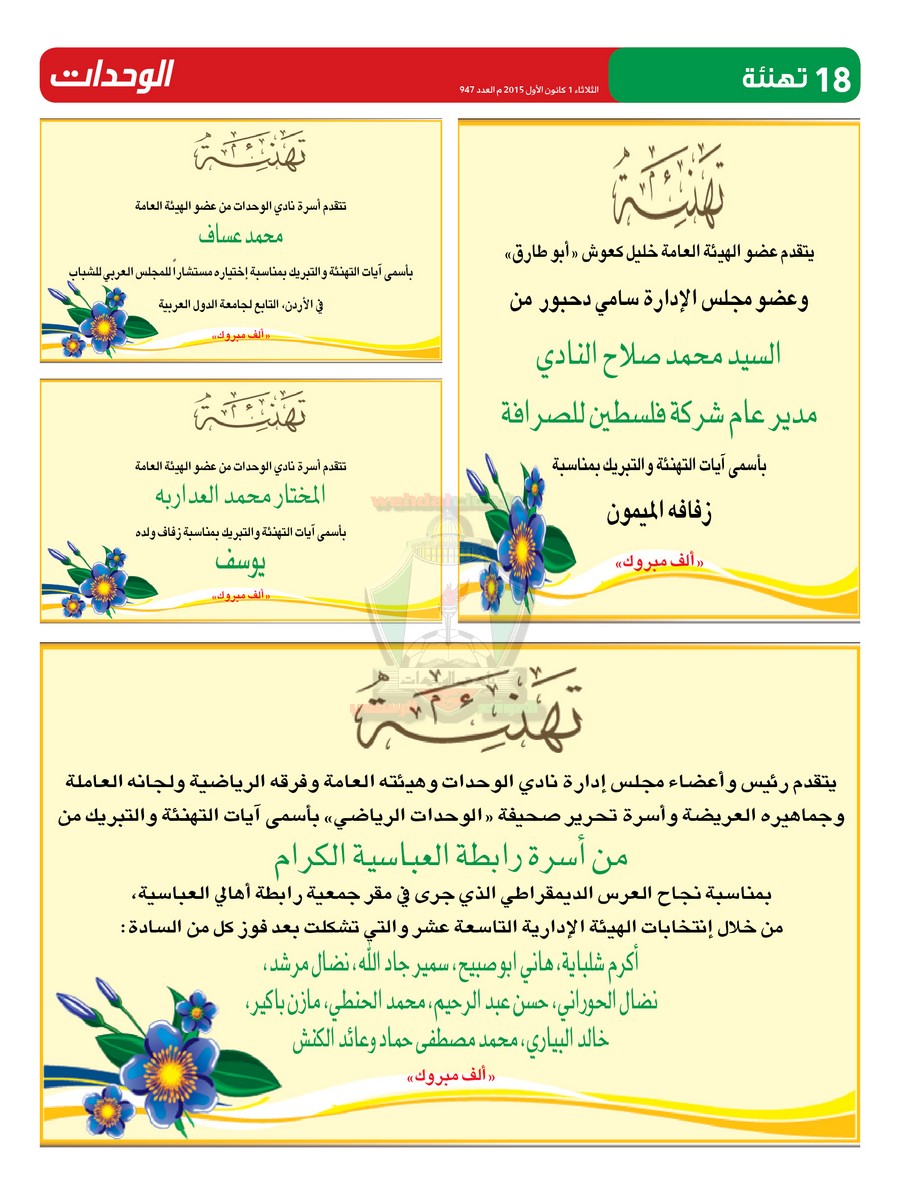 18 تهنئة
الثلاثاء 1 كانون الأول 2015 م العدد 947
الوحدات
تهنئة
يتقدم عضو الهيئة العامة خليل كعوش «أبو طارق»
وعضو مجلس الإدارة سامي دحبور من
السيد محمد صلاح النادي
مدير عام شركة فلسطين للصرافة
بأسمى آيات التهنئة والتبريك بمناسبة
زفافه الميمون
«ألف مبروك»
تهنئة
تتقدم أسرة نادي الوحدات من عضو الهيئة العامة
محمد عساف
بأسمى آيات التهنئة والتبريك بمناسبة إختياره مستشاراً للمجلس العربي للشباب
في الأردن، التابع لجامعة الدول العربية
«ألف مبروك»
تهنئة
تتقدم أسرة نادي الوحدات من عضو الهيئة العامة
المختار محمد العداربه
بأسمى آيات التهنئة والتبريك بمناسبة زفاف ولده
يوسف
«ألف مبروك»
تهنئة
يتقدم رئيس وأعضاء مجلس إدارة نادي الوحدات وهيئته العامة وفرقه الرياضية ولجانه العاملة
وجماهيره العريضة وأسرة تحرير صحيفة «الوحدات الرياضي» بأسمى آيات التهنئة والتبريك من
من أسرة رابطة العباسية الكرام
بمناسبة نجاح العرس الديمقراطي الذي جرى في مقر جمعية رابطة أهالي العباسية،
من خلال إنتخابات الهيئة الإدارية التاسعة عشر والتي تشكلت بعد فوز كل من السادة:
أكرم شلباية، هاني ابوصبيح، سمير جاد الله، نضال مرشد،
نضال الحوراني، حسن عبد الرحيم، محمد الحنطي، مازن باكير،
خالد البياري، محمد مصطفى حماد وعائد الكنش
«ألف مبروك»